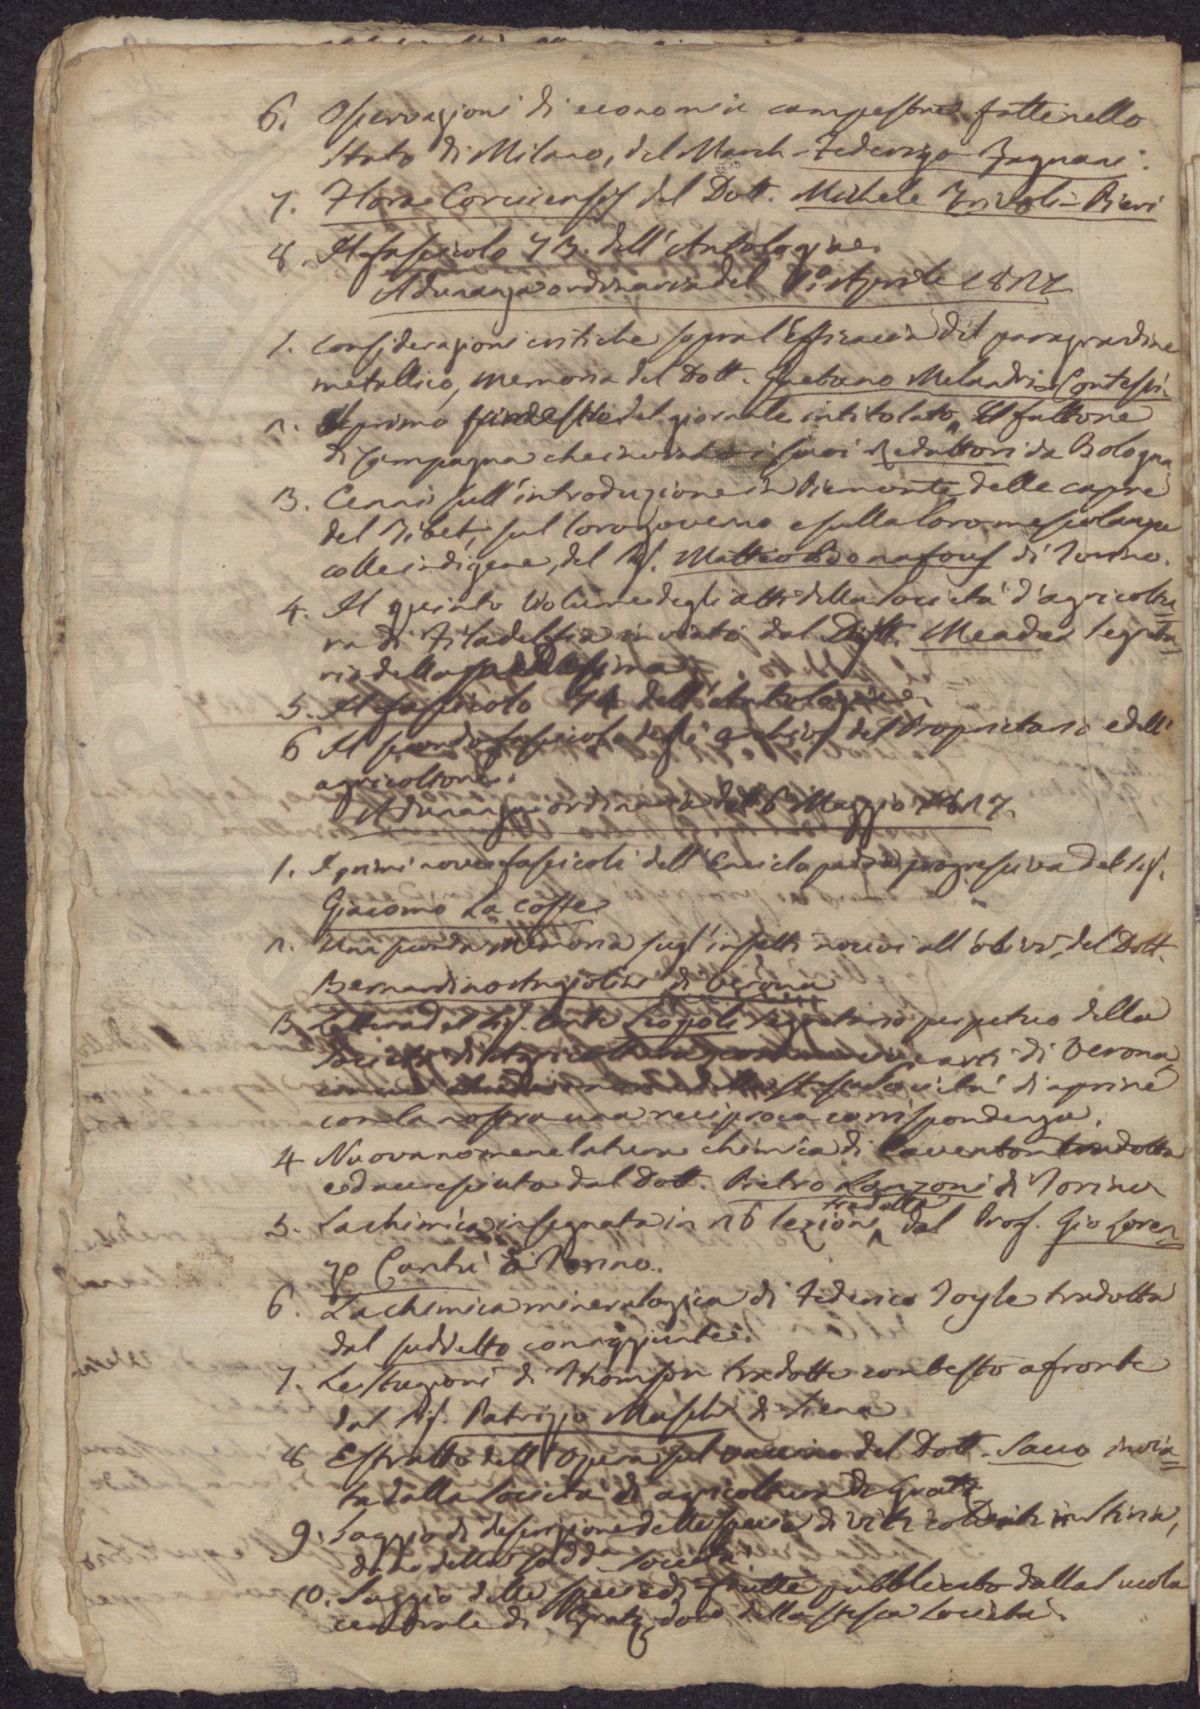 6. Osservazioni di economia campestre fatte nello
Stato di Milano, del March. Federigo Fagnani.
7. Florae Corcirensis del Dott. Michele Trivoli-Pieri
8. Il fascicolo 73. dell'Antologia.
Adunanza ordinaria del 1° Aprile 1827.
1. Considerazioni critiche sopra l'Efficacia del paragrandine
metallico, memoria del Dott. Gaetano Melandri Contessi.
2. Il primo del giornale intitolato, Il fattore
di Campagna che inviano i suoi Redattori da Bologna
3. Cenni sull'introduzione in Piemonte delle capre
del Tibet, sul loro governo e sulla loro mescolanza
colle indigene, del Sig. Matteo Bonafous di Torino.
4. Il quinto Volume degli atti della Società d'agricoltu=
ra di Filadelfia inviato dal Dott. Meade Segreta=
rio della medesima
5. Il fascicolo 74 dell'Antologia.
6 Il secondo fascicolo degli archivj del Proprietario e dell'
agricoltore.
Adunanza ordinaria del 6 Maggio 1827.
1. I primi nove fascicoli dell'Enciclopedia progressiva del Sig.
Giacomo La Coste
2. Una seconda memoria sugl'insetti nocivi all'olivo, del Dott.
Bernardino Angiolini di Verona
3. Lettera del Sig. Conte Leopoli Segretario perpetuo della
Società di Agricoltura commercio e arti di Verona
della stessa Società di aprire
con la nostra una reciproca corrispondenza.
4 Nuova nomenclatura chimica di Caventou tradotta
ed accresciuta dal Dott. Pietro Lanzoni di Torino
5. La chimica insegnata in 26 lezioni tradotta dal Prof. Gio Loren=
zo Cantù di Torino.
6. La chimica mineralogica di Federico Joyle tradotta
dal suddetto con aggiunte.
7. Le stagioni di Thomson tradotte con testo a fronte
dal Sig. Patrizio Muschi di Siena
8 Estratto dell'Opera sul vaccino del Dott. Sacco invia=
ta dalla Società di agricoltura di Gratz
9. Saggio di descrizione delle specie di viti coltivate in Stiria,
dono della sudda Società
10. Saggio delle specie di frutte pubblicato dalla Scuola
centrale di Gratz, dono della stessa Società.